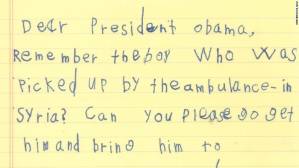 Dear President obama,
Remember the boy who was
picked up by the ambulance in
Syria? Can you please go get
him and bring him to